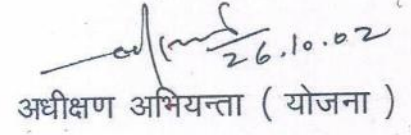 26.10.02
अधीक्षण अभियन्ता ( योजना )